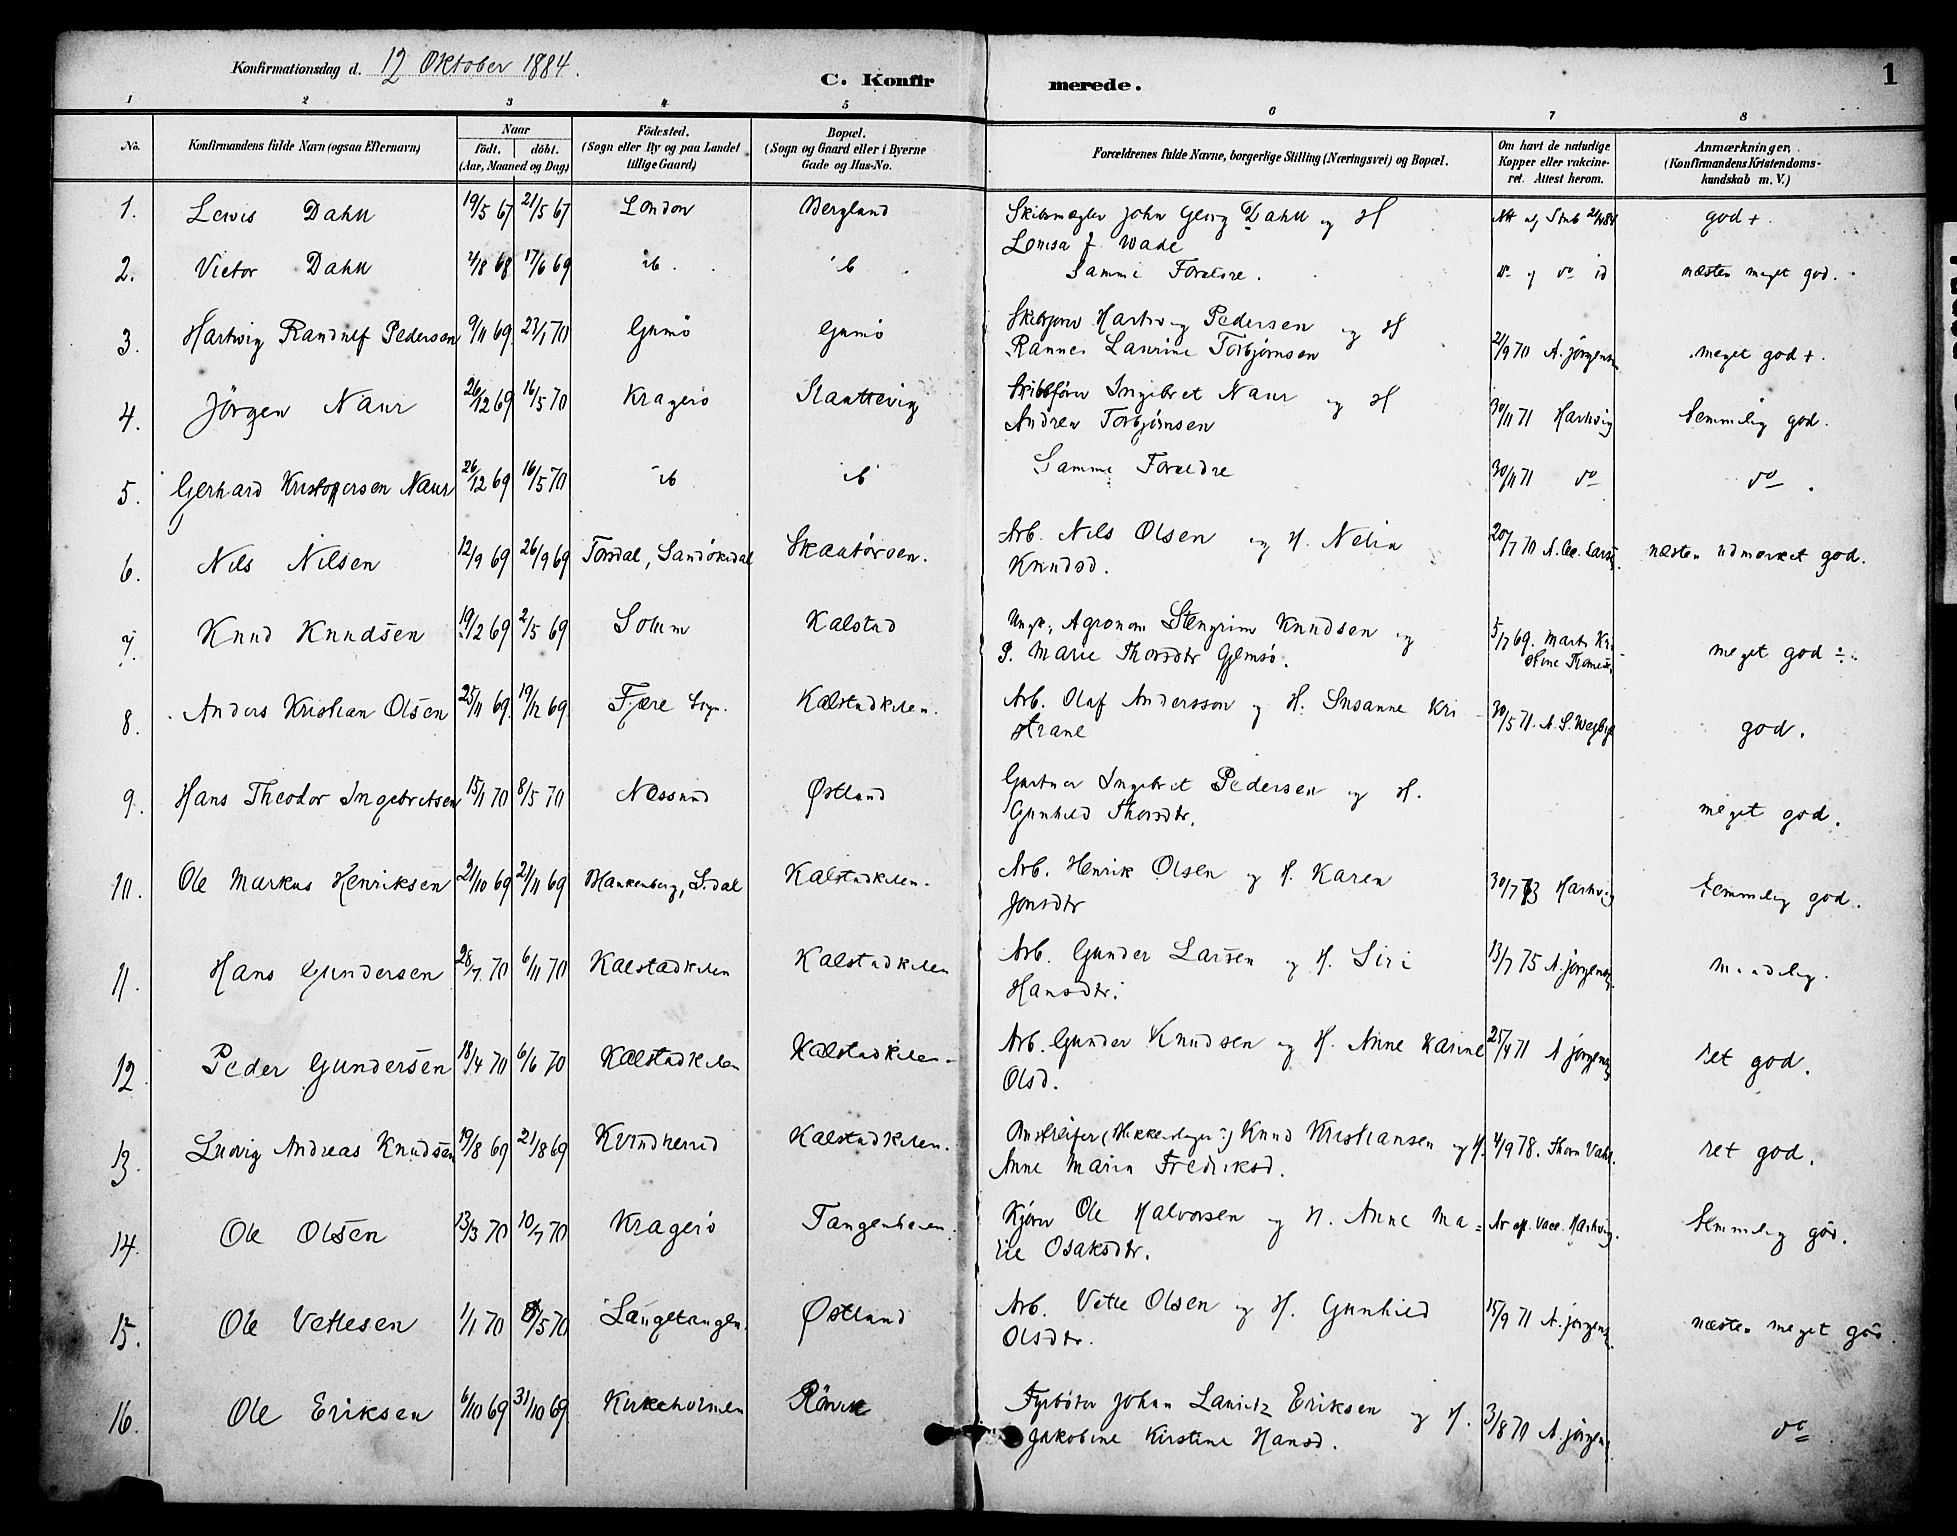 Konfirmationsdag d. 12 Oktober 1884.
C. Konfirmerede.
1
1 2 3 4 5 6 7 8
No.
Konfirmandens fulde Navn (ogsaa Efternavn)
Naar
födt. döbt.
(Aar, Maaned og Dag)
Födested.
(Sogn eller By og paa Landet
tillige Gaard)
Bopæl.
(Sogn og Gaard eller i Byerne
Gade og Hus-No.
Forældrenes fulde Navne, borgerlige Stilling (Næringsvei) og Bopæl.
Om havt de naturlige
Kopper eller vakcine-
ret. Attest herom.
Anmærkninger.
(Konfirmandens Kristendoms-
kundskab m. V.)
1. Lewis Dahll 19/5 67 21/5 67 London Bergland Skibsmægler John Georg Dahll og H god +
Louisa J. Wade
2. Victor Dahll 17/6 69 ib. ib. Samme Forældre. do næsten meget god.
3. Hartwig Randulf Pedersen 9/11 69 23/1 70 Gumö Gumö Hartvig Pedersen og H
Laurine Torbjørnsen 2/9 70 A. Jørgensen meget god +.
4. Jörgen Naur 26/12 69 16/5 70 Kragerö Slaattevig Skibsfører Ingebret Naur og H
Andrea Torbjørnsen 30/11 71 Hartvig temmelig god.
5. Gerhard Kristoffersen Naur 26/12 69 16/5 70 ib ib Samme Forældre 30/11 71 do do.
6. Nils Nilsen 12/9 69 26/9 69 Torsdal, Sandökedal Skaatörsen. Arb. Nils Olsen og H. Nelia
Knudsd. 20/7 70 næsten udmærket god.
7. Knud Knudsen 19/2 69 2/5 69 Solum Kalstad Agronom Stengrim Knudsen og
P. Marie Thorsdtr Gjemsö. 5/7 69. meget god ÷.
8. Anders Kristian Olsen 25/11 69. 19/12 69. Fjære Sogn. Kalstadkilen. Arb. Olaf Andersson og H. Susanne Kri-
stiane 30/5 71. god.
9. Hans Theodor Ingebretsen 15/1 70 8/5 70 Næssund Østlund Gartner Ingebret Pedersen og H.
Gunhild Thorsdtr. meget god.
10. Ole Markus Henriksen 21/10 69 21/11 69 Blankenberg, S.dal Kalstadkilen. Arb. Henrik Olsen og H. Karen
Jonsdtr 30/7 73 Hartvig temmelig god.
11. Hans Gundersen 28/7. 70 6/11 70 Kalstadkilen Kalstadkilen Arb. Gunder Larsen og H. Siri
Hansdtr. 13/7 75 A. Jørgensen maadelig.
12. Peder Gundersen 18/4 70 6/6 70 Kalstadkilen Kalstadkilen Arb. Gunder Knudsen og H. Anne Karine
Olsd. 25/4 71 A Jørgensen ret god.
13. Ludvig Andreas Knudsen 19/8 69 21/8 69 Kvindherred Kalstadkilen. Knud Kristiansen og H. 4/9 78. Thorn Vahl. ret god.
Anne Maria Fredriksd.
14. Ole Olsen 13/3 70 10/7 70 Kragerö Tangenheien. Ole Halvorsen og H. Anne Ma=
rie Osaksdtr. Vacc. Hartvig. temmelig god.
15. Ole Vettesen 1/1 70 8/5 70 Langetangen. Østlund Arb. Vette Olsen og H. Gunhild
Olsdtr. 15/9 71 A. Jørgensen næsten meget god
16. Ole Eriksen 6/10 69 31/10 69 Kirkeholmen Rörvik Fyrbøter Johan Lauritz Eriksen og H.
Jakobine Kirstine Hansd. 3/8 70 A Jørgensen do